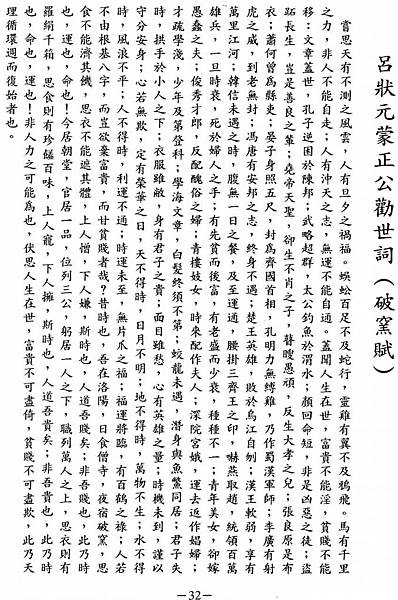 呂狀元蒙正公勸世詞(破窯賦)
嘗思天有不測之風雲,人有旦夕之禍福。蜈蚣百足不及蛇行,靈雞有翼不及鴉飛。馬有千里
之力,非人不能自走;人有沖天之志,無運不能自通。蓋聞人生在世,富貴不能淫,貧賤不能
移;文章蓋世,孔子逆困於陳邦;武略超群,太公釣魚於渭水;顏回命短,非是凶惡之徒;盜
跖長生,豈是善良之輩;堯帝天聖,卻生不肖之子,瞽瞍愚頑,反生大孝之兒;張良原是布
衣;蕭何曾為縣吏;晏子身照五尺,封為齊國首相,孔明力無縛雞,乃作蜀漢軍師;李廣有射
虎之威,到老無封;馮唐有安邦之志,終身不遇;楚王英雄,敗於烏江自刎;漢王軟弱,享有
萬里江河;韓信未遇之時,腹無一日之餐,及至運通,腰掛三齊王之印,嚇燕取趙,統領百萬
雄兵,一旦時衰,死於婦人之手;有先貧而後富,有老盛而少衰,種種不一;青年美女,卻嫁
愚蠢之夫;俊秀才郎,反配醜俗之婦;青樓妓女,時來配作夫人;深院宮娥,運去返作娼婦;
才疏學淺,少年及第登科;學海文章,白髮終須不第;蛟龍未遇,潛身與魚鱉同居;君子失
時,拱手於小人之下;衣服雖敝,身有君子之貴;面目雖愁,心有英雄之量;時機未到,謹以
守分安身;心若無欺,定有榮華之日,天不得時,日月不明;地不得時,萬物不生;水不得
時,風浪不平;人不得時,利運不通;時運未至,無片爪之福;福運將臨,有百鶴之祿;人若
不由根基八字,而豈欲棄富貴,而甘貧賤者哉?昔時也,吾在洛陽,日食僧寺,夜宿破窯,思
食不能濟其饑,思衣不能遮其體,上人憎,下人嫌,斯時也,人道吾賤矣;非吾賤也,此乃時
也,運也,命也!今居朝堂,官居一品,位列三公,躬居一人之下,職列萬人之上,思衣則有
羅綃千箱,思食則有珍饈百味,上人寵,下人擁,斯時也,人道吾貴矣;非吾貴也,此乃時
也,命也,運也!非人力之可能為也,伏思人生在世,富貴不可盡倚,貧賤不可盡欺,此乃天
理循環週而復始者也。
—32—